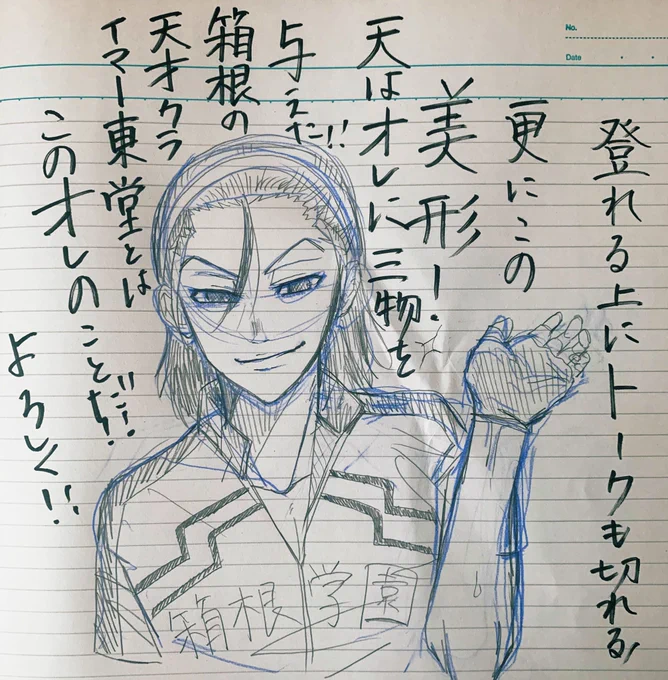 No.
Date
登れる上にトークも切れる!
更にこの
美形!
天はオレに三物を
与えた!!
箱根の
天才クラ
イマー東堂とは
このオレのことだ!!
よろしく!!
箱根学園